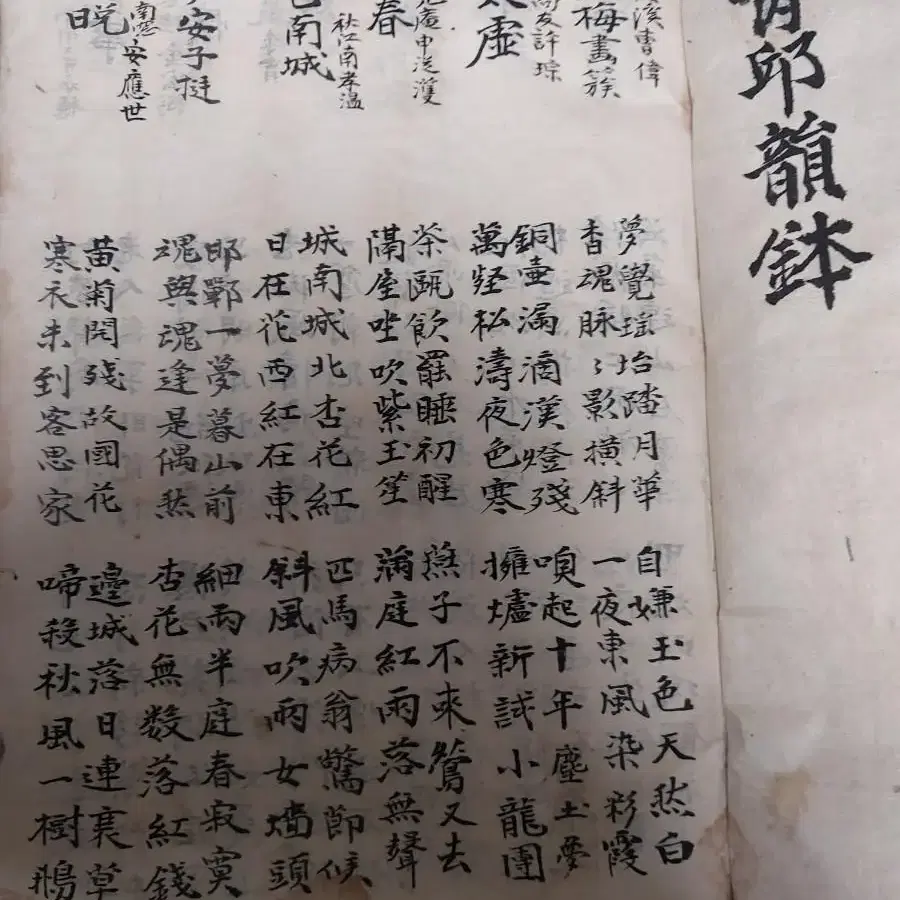 邱韻鉢
溪曹偉
梅畫簇
夢覺瑤坮踏月華
香魂脉〻影橫斜
自嫌玉色天然白
一夜東風染彩霞
尚友許琮
虛
銅壺漏滴漢燈殘
萬壑松濤夜色寒
喚起十年塵土夢
擁爐新試小龍團
庵申從濩
春
茶甌飮罷睡初醒
隔屋坐吹紫玉笙
燕子不來鶯又去
滿庭紅雨落無聲
秋江南孝溫
南城
城南城北杏花紅
日在花西紅在東
匹馬病翁驚節候
斜風吹雨女墻頭
安子挺
邯鄲一夢暮山前
魂與魂逢是偶然
細雨半庭春寂寞
杏花無數落紅錢
南窓安應世
晩
黃菊開殘故國花
寒衣未到客思家
邊城落日連衰草
啼殺秋風一樹鴉